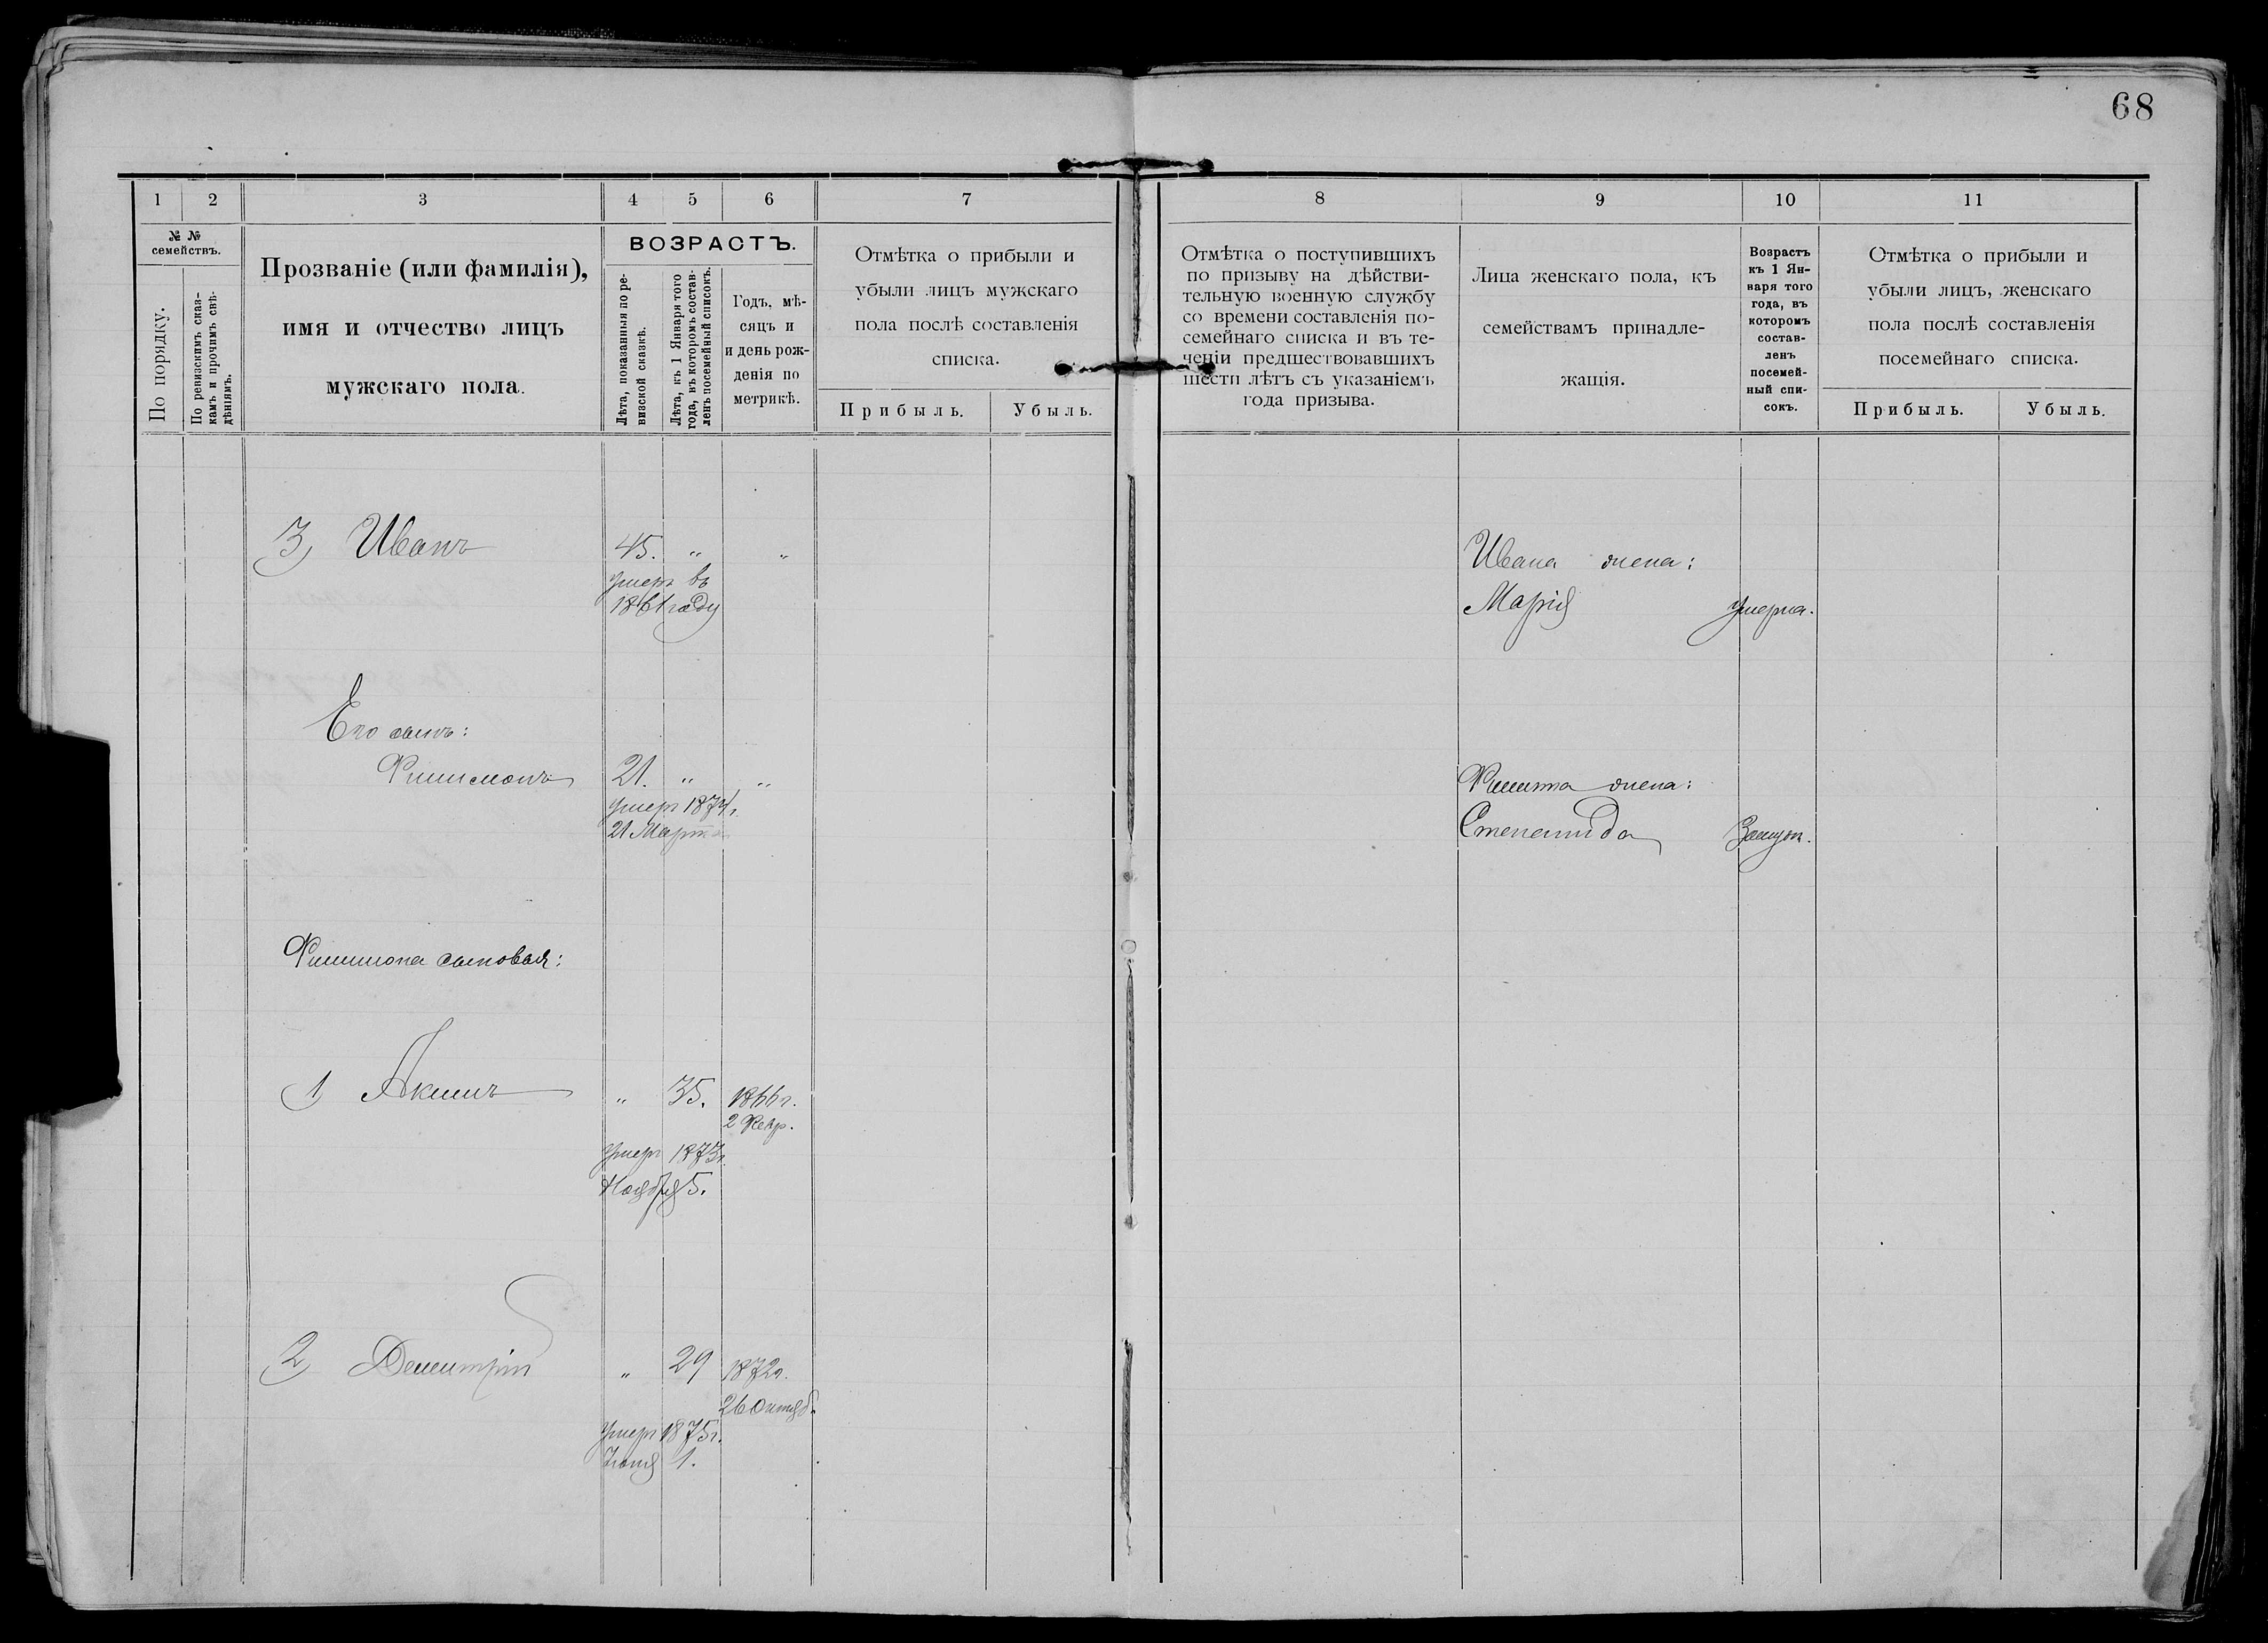 68
1 2 3 4 5 6 7
№ №
семействъ.
По порядку.
По ревизскимъ сказ-
камъ и прочимъ свѣ-
дѣніямъ.
Прозваніе (или фамилія),
имя и отчество лицъ
мужскаго пола.
ВОЗРАСТЪ.
Лѣта, показанныя по ре-
визской сказкѣ.
Лѣта, къ 1 Января того
года, въ которомъ состав-
ленъ посемейный списокъ.
Годъ, мѣ-
сяцъ и
и день рож-
денія по
метрикѣ.
Отмѣтка о прибыли и
убыли лицъ мужскаго
пола послѣ составленія
списка.
Прибыль. Убыль.
3) Иванъ 45. " "
умеръ въ
1861 году
Его сынъ:
Филимонъ 21. " "
умеръ 1874 г.
21 Марта
Филимона сыновья:
1) Акимъ " 35. 1866 г.
2 Февр.
умеръ 1873 г.
Ноября 5.
2) Демитрій " 29 1872 г.
26 Октяб.
умеръ 1875 г.
1.
8 9 10 11
Отмѣтка о поступившихъ
по призыву на дѣйстви-
тельную военную службу
со времени составленія по-
семейнаго списка и въ те-
ченіи предшествовавшихъ
шести лѣтъ съ указаніемъ
года призыва.
Лица женскаго пола, къ
семействамъ принадле-
жащія.
Возрастъ
къ 1 Ян-
варя того
года, въ
которомъ
состав-
ленъ
посемей-
ный спи-
сокъ.
Отмѣтка о прибыли и
убыли лицъ, женскаго
пола послѣ составленія
посемейнаго списка.
Прибыль. Убыль.
Ивана жена:
Марія умерла.
жена:
Степанида Замуж.